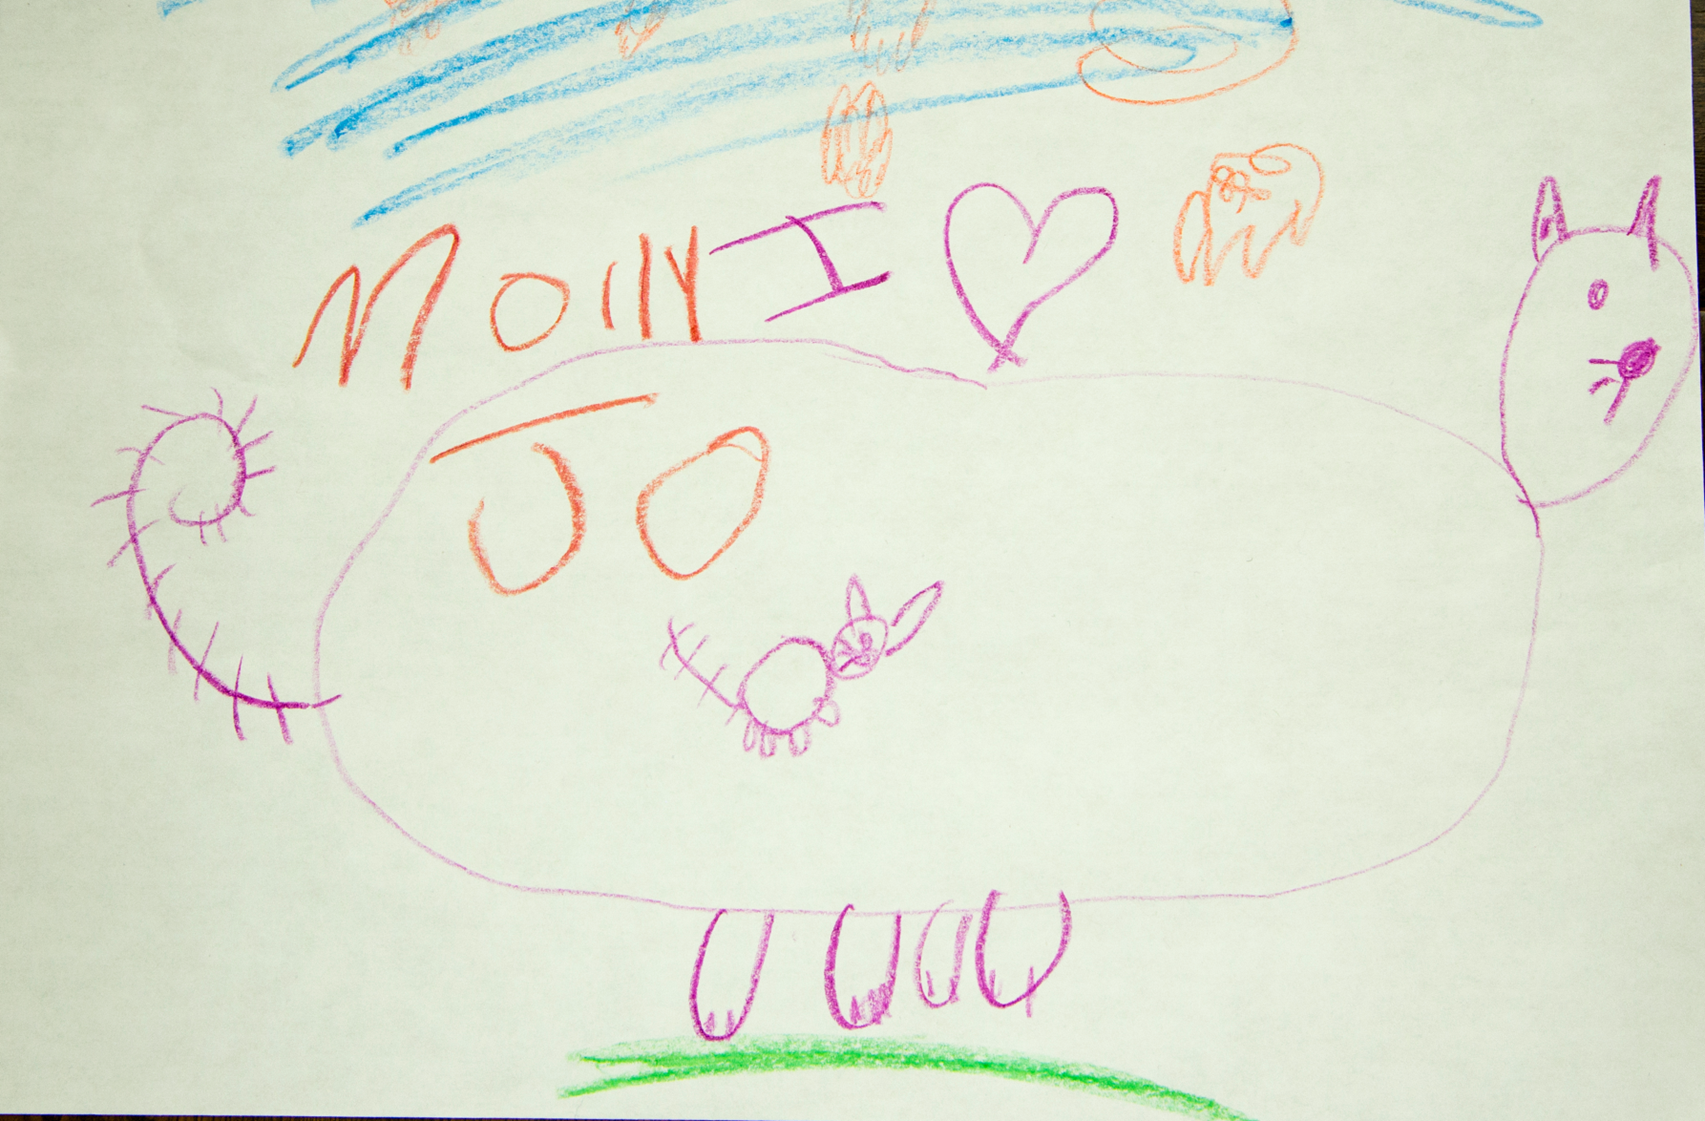 Molly I ♥
JO